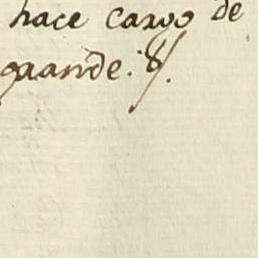 hace cargo de
grande.